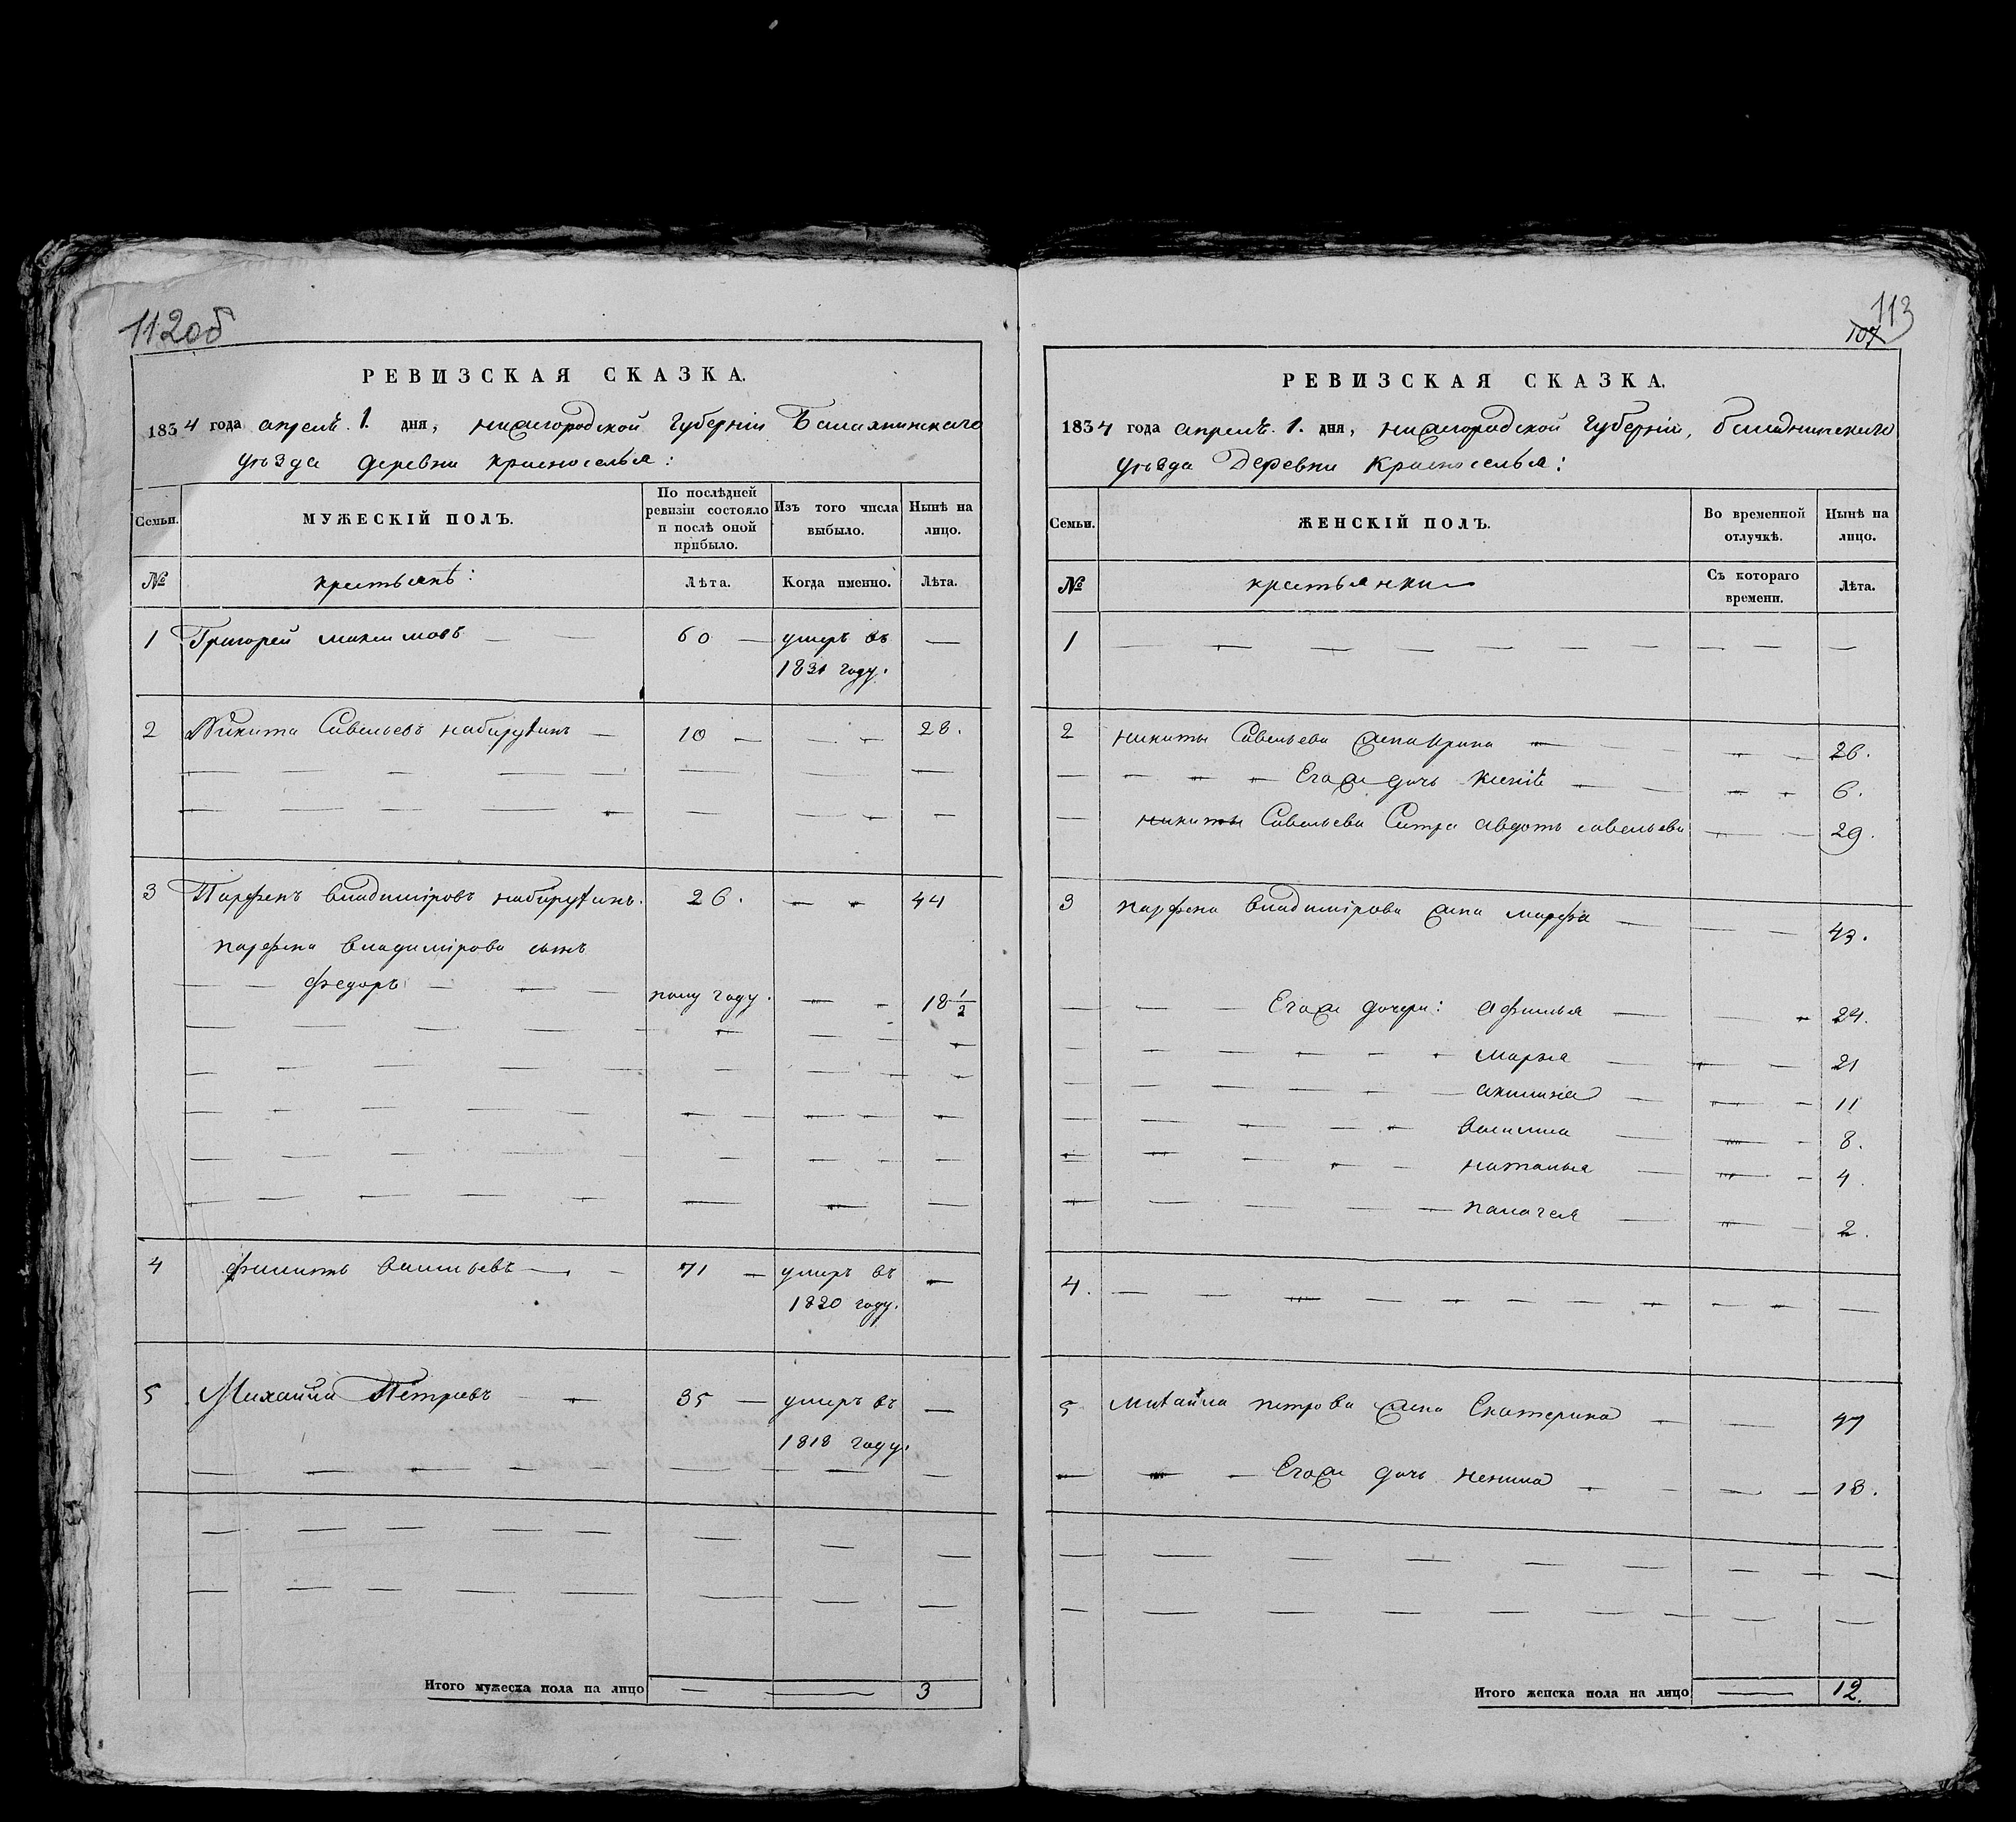 112об
РЕВИЗСКАЯ СКАЗКА.
1834 года апреля 1. дня, нижегородской губерніи Балахнинскаго
уѣзда деревни красноселья:
Семьи. МУЖЕСКІЙ ПОЛЪ. По послѣдней ревизіи состояло и послѣ оной прибыло. Изъ того числа выбыло. Нынѣ на лицо.
№ крестьянъ: Лѣта. Когда именно. Лѣта.
1 Григорей максимовъ — 60 — умеръ въ —
1831 году.
2 Никита Савельевъ набирухинъ — 10 — — 28.
3 Парфенъ владиміровъ набирухинъ. 26. — 44
парфена владимірова сынъ
федоръ — полу году. — 18 1/2
4 филипъ васильевъ — 71 — умеръ въ —
1820 году.
5 Михайла Петровъ — 35 — умеръ въ —
1818 году.
Итого мужеска пола на лицо — — 3
113
107
РЕВИЗСКАЯ СКАЗКА.
1834 года апреля 1. дня, нижегородской губерніи, балахнинскаго
уѣзда Деревни Красноселья:
Семьи. ЖЕНСКІЙ ПОЛЪ. Во временной отлучкѣ. Нынѣ на лицо.
№ крестьянки Съ котораго времени. Лѣта.
1 — — —
2 никиты Савельева жена Ирина — — 26.
Его же дочь Ксеніѣ — — 6.
никиты Савельева Сестра авдотья савельева — 29.
3 парфена владимірова жена марфа — — 43.
Его же дочери: афимья — — 24.
марья — — 21
акилина — — 11
василиса — — 8.
наталья — — 4.
палагея — — 2.
4. — — —
5 михайла петрова жена Екатерина — — 47
Его же дочь ненила — — 18.
Итого женска пола на лицо — 12.